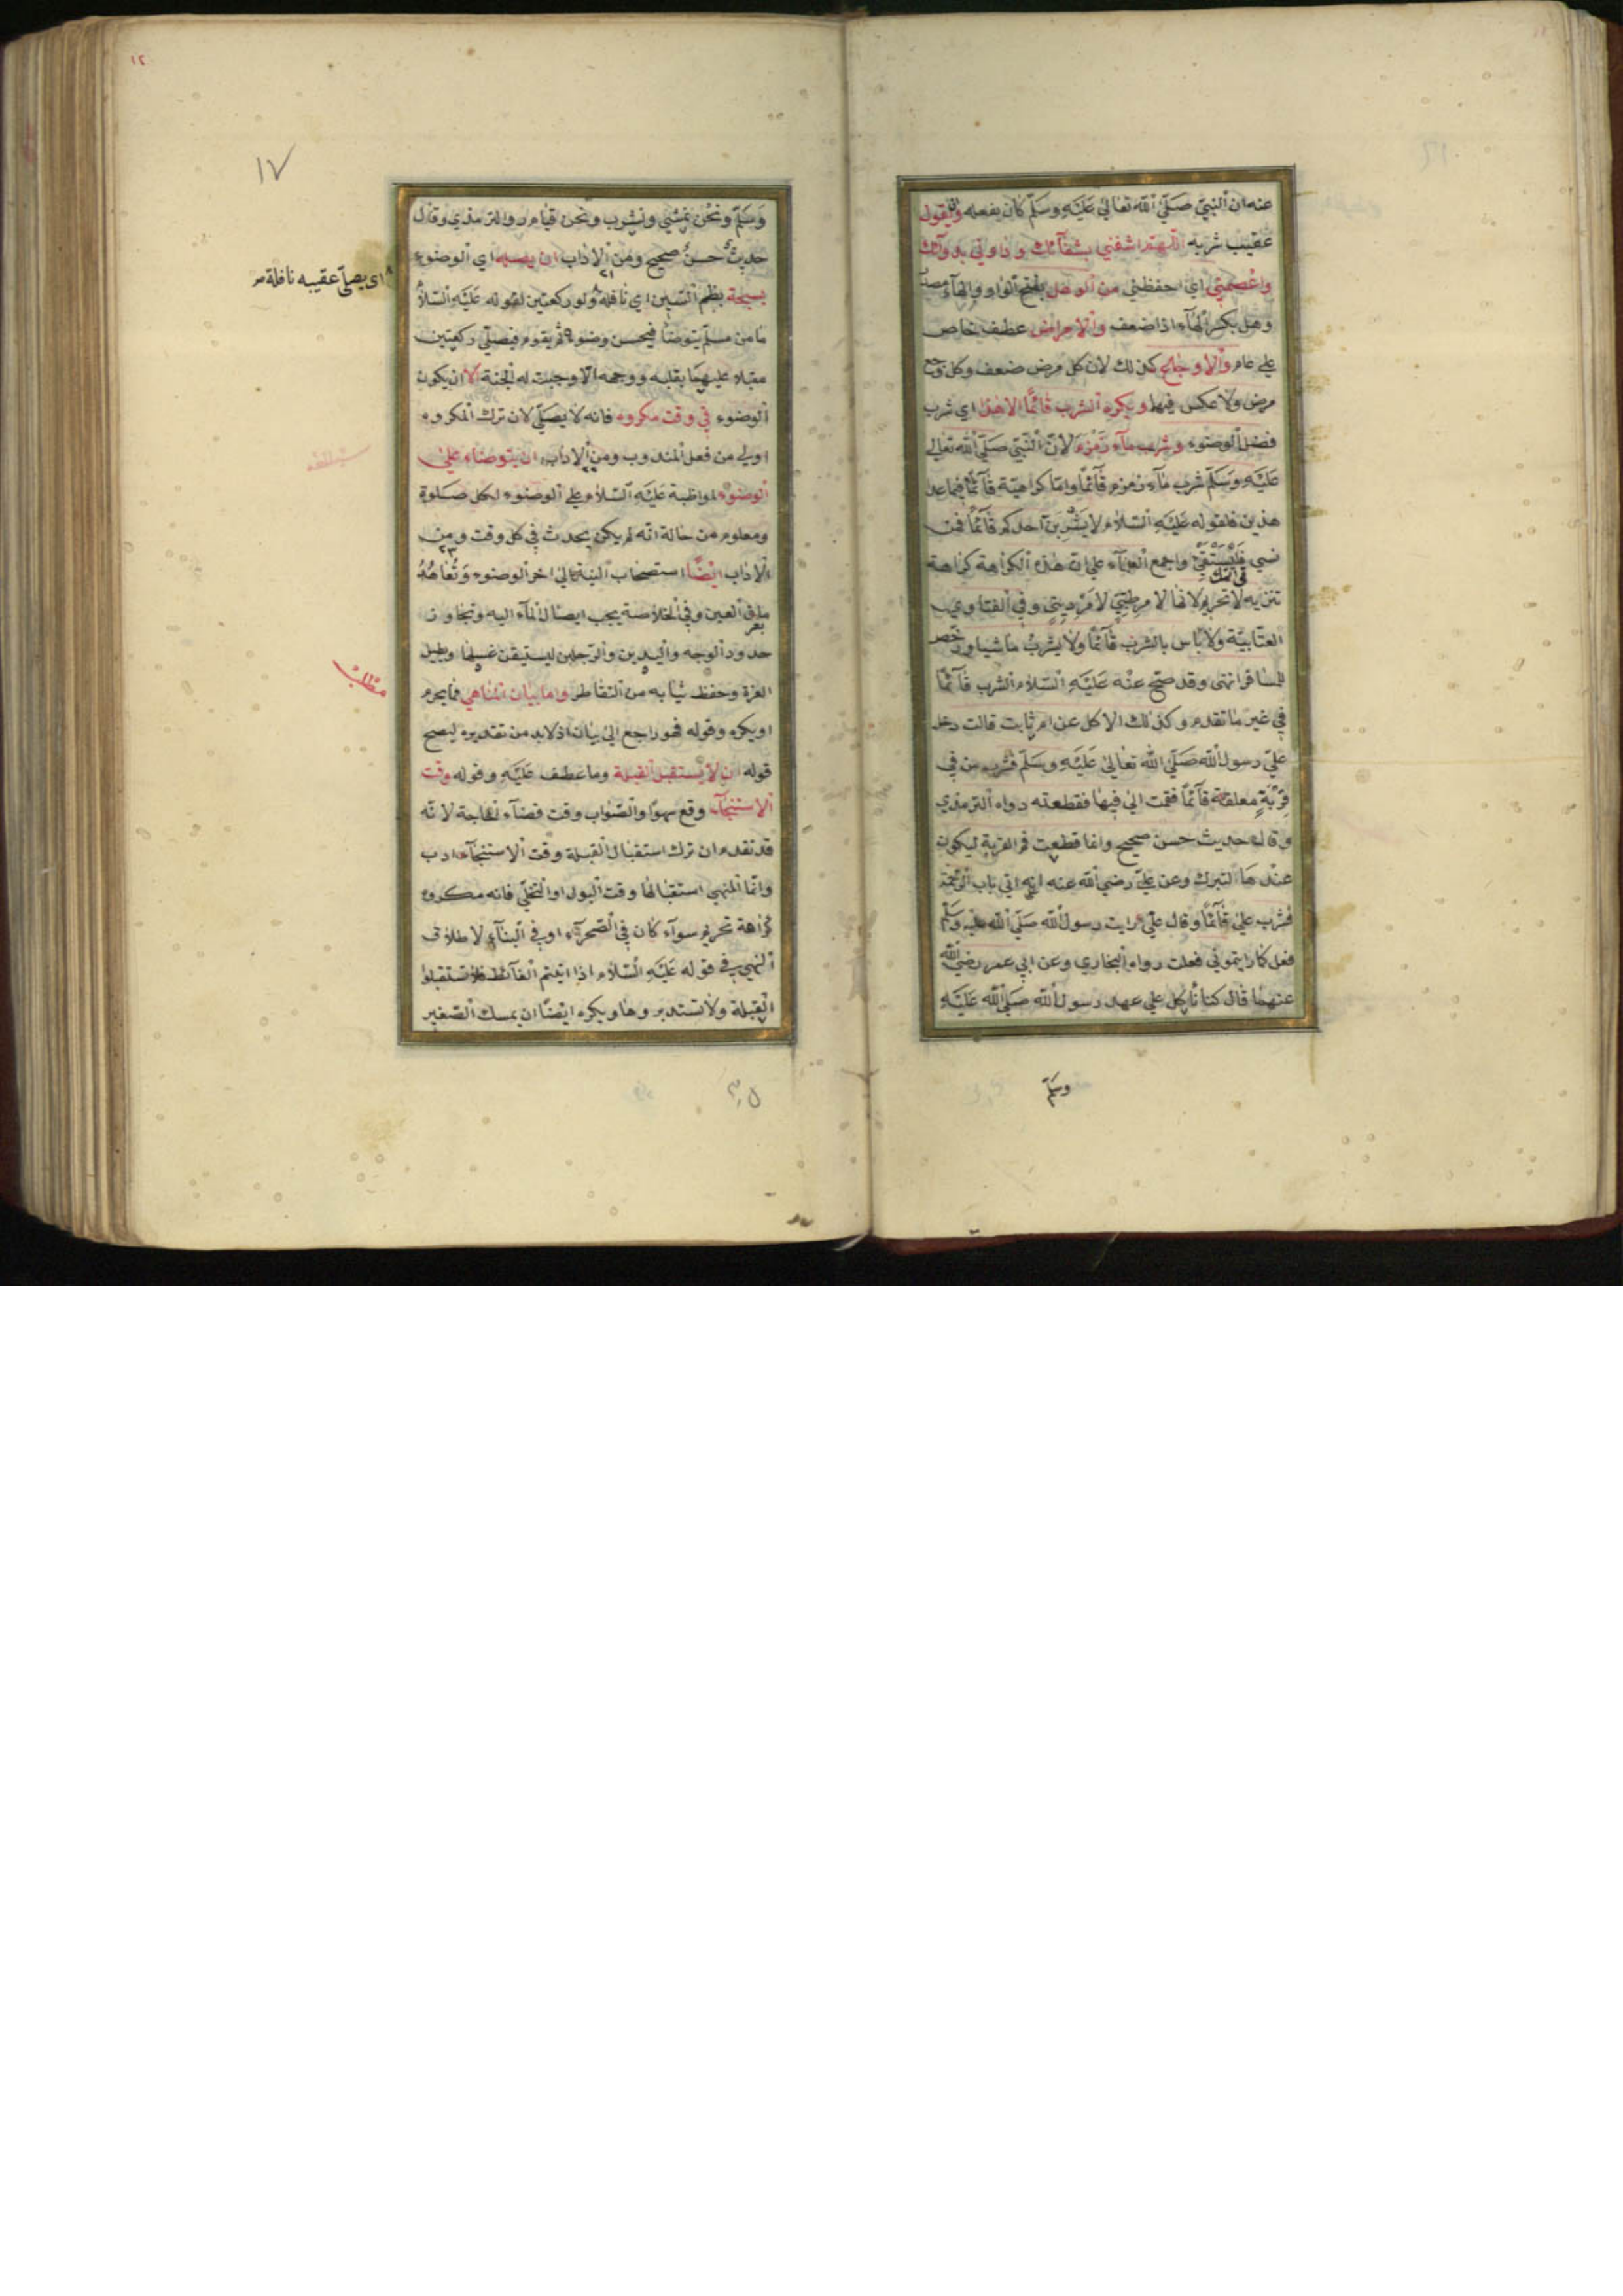 عنه ان النبي صلى الله تعالى عليه وسلم كان يفعله وان يقول
عقيب شربه اللهم اشفني بشفآئك وداوني بدوآئك
واعصمني اي احفظني من الوهل بفتح الواو والهآء مصدر
وهل بكسر الهآء اذا ضعف والامراض عطف خاص
على عام والاوجاع كذلك لان كل مرض ضعف وكل وجع
مرض ولا عكس فيها ويكره الشرب قائما الا هذا اي شرب
فضل الوضوء وشرب مآء زمزم لان النبي صلى الله تعالى
عليه وسلم شرب مآء زمزم قآئما واما كراهية قآئما فيما عدا
هذين فلقوله عليه السلام لا يشربن احدكم قآئما فمن
نسي فليستقئ واجمع العلمآء على ان هذه الكراهة كراهة
تنزيه لا تحريم لانها لامر طبي لا مر ديني وفي الفتاوي
العتابية ولا باس بالشرب قآئما ولا يشرب ماشيا ورخص
للمسافر انتهى وقد صح عنه عليه السلام الشرب قآئما
في غير ما تقدم وكذلك الاكل عن ام ثابت قالت دخل
علي رسول الله صلى الله تعالى عليه وسلم فشرب من في
قربة معلقة قآئما فقمت الى فيها فقطعته رواه الترمذي
وقال حديث حسن صحيح وانما قطعت فم القربة ليكون
عندها للتبرك وعن علي رضي الله عنه انه اتى باب الرحبة
فشرب علي قآئما وقال علي رايت رسول الله صلى الله عليه وسلم
فعل كما رايتموني فعلت رواه البخاري وعن ابي عمر رضي الله
عنهما قال كنا ناكل على عهد رسول الله صلى الله عليه
وسلم
١٢
١٧
وسلم ونحن نمشي ونشرب ونحن قيام رواه الترمذي وقال
حديث حسن صحيح ومن الاداب ان يصله اي الوضوء
بسبحة بظم السين اي نافلة ولو ركعتين لقوله عليه السلام
ما من مسلم يتوضأ فيحسن وضوءه ثم يقوم فيصلي ركعتين
مقبلا عليهما بقلبه ووجهه الا وجبت له الجنة الا ان يكون
الوضوء في وقت مكروه فانه لا يصلي لان ترك المكروه
اولى من فعل المندوب ومن الاداب ان يتوضاء على
الوضوء لمواظبة عليه السلام على الوضوء لكل صلوة
ومعلوم من حاله انه لم يكن يحدث في كل وقت ومن
الاداب ايضا استصحاب النية الى اخر الوضوء وتعاهد
ماق العين وفي الخلاصة يجب ايصال المآء اليه وتجاوز
حدود الوجه واليدين والرجلين ليستيقن غسلها ويطيل
الغرة وحفظ ثيابه من التقاطر واما بيان المناهي فما يحرم
او يكره وقوله فهو راجع الى بيان اذ لا بد من تقديره ليصح
قوله ان لا يستقبل القبلة وما عطف عليه وقوله وقت
الاستنجآء وقع سهوا والصواب وقت قضآء الحاجة لانه
قد تقدم ان ترك استقبال القبلة وقت الاستنجآء ادب
وانما المنهي استقبالها وقت البول او التخلي فانه مكروه
كراهة تحريم سوآء كان في الصحرآء او في البنآء لاطلاق
النهي في قوله عليه السلام اذا اتيتم الغآئط فلا تستقبلوا
القبلة ولا تستدبروها ويكره ايضا ان يمسك الصغير
اي يصلي عقيبه نافلة
مطلب